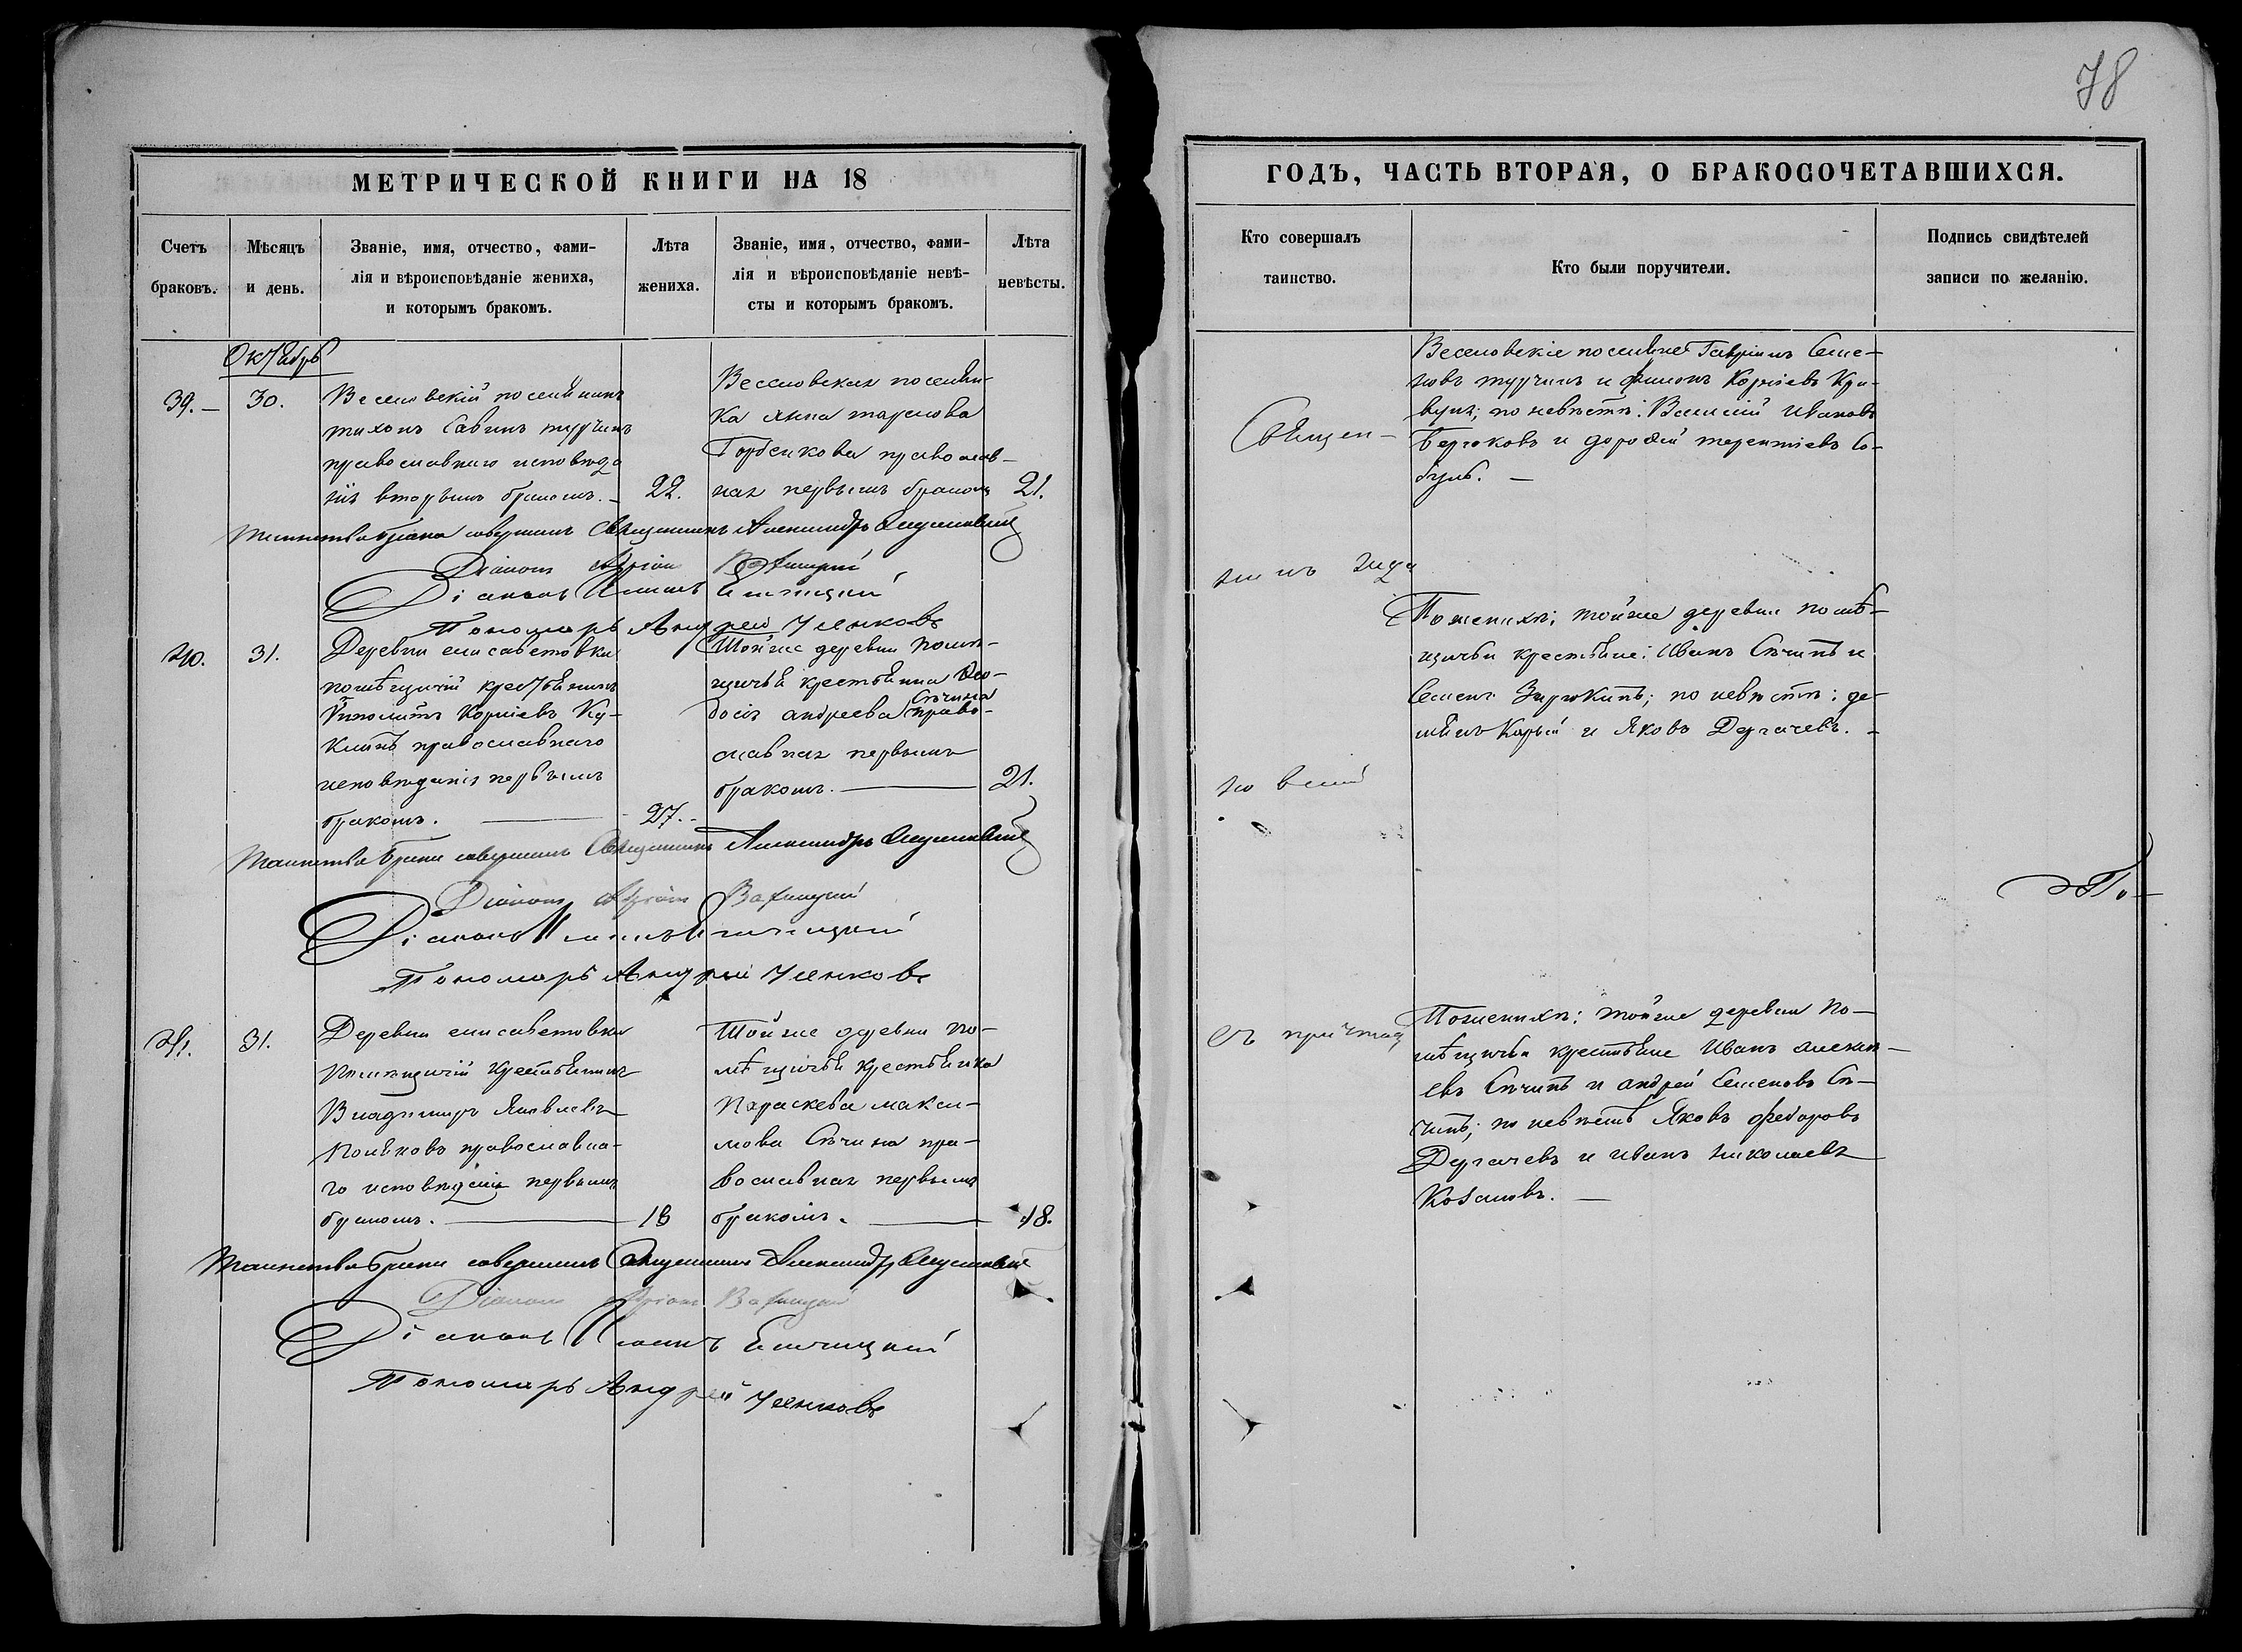 78
МЕТРИЧЕСКОЙ КНИГИ НА 18
Счетъ браковъ.
Мѣсяцъ и день.
Званіе, имя, отчество, фами-
лія и вѣроисповѣданіе жениха,
и которымъ бракомъ.
Лѣта жениха.
Званіе, имя, отчество, фами-
лія и вѣроисповѣданіе невѣ-
сты и которымъ бракомъ.
Лѣта невѣсты.
Октябрь
39.—
30.
Веселовскій поселянинъ
тихонъ Савинъ турчинъ
православнаго исповѣда
нія вторымъ бракомъ.—
22.
Веселовская поселян-
ка Анна тарасова
Горбенкова православ-
ная первымъ бракомъ
21.
Таинство брака совершилъ Священникъ Александръ
Діаконъ
Діаконъ
Пономарь Андрей Усенковъ
40.
31.
Деревни елисаветовки
помѣщичій крестьянинъ
Иполитъ Корніевъ Ку-
православнаго
исповѣданія первымъ
бракомъ.
27.
Тойже деревни помѣ-
щичья крестьянка Ѳео-
досія андреева Сѣчина право-
славная первымъ
бракомъ.
21.
Таинство брака совершилъ Священникъ Александръ
Діаконъ
Діаконъ
Пономарь Андрей Усенковъ
41.
31.
Деревни елисаветовки
Помѣщичій крестьянинъ
Владимиръ Яковлевъ
Поляковъ православна-
го исповѣданія первымъ
бракомъ.
18
Тойже деревни по-
мѣщичья крестьянка
Параскева макси-
мова Сѣчина пра-
вославная первымъ
бракомъ.
18.
Таинство брака совершилъ Священникъ Александръ
Діаконъ
Діаконъ
Пономарь Андрей Усенковъ
ГОДЪ, ЧАСТЬ ВТОРАЯ, О БРАКОСОЧЕТАВШИХСЯ.
Кто совершалъ таинство.
Кто были поручители.
Подпись свидѣтелей записи по желанію.
Веселовскіе поселяне Гавріилъ Семе-
новъ турчинъ и филипъ Корніевъ Кри-
вуша; по невѣстѣ: Василій Ивановъ
и дорофей терентіевъ Со-
буль. —
Священ-
По женихѣ; тойже деревни помѣ-
щичьи крестьяне: Иванъ Сѣчинъ и
Семенъ; по невѣстѣ: де-
мянъ Карый и Яковъ Дергачевъ. —
По женихѣ: тойже деревни По-
мѣщичьи крестьяне Иванъ алексѣ-
евъ Сѣчинъ и андрей Семеновъ Сѣ-
чинъ; по невѣстѣ Яковъ федоровъ
Дергачевъ и иванъ николаевъ
Козаковъ. —
съ причтомъ
По-